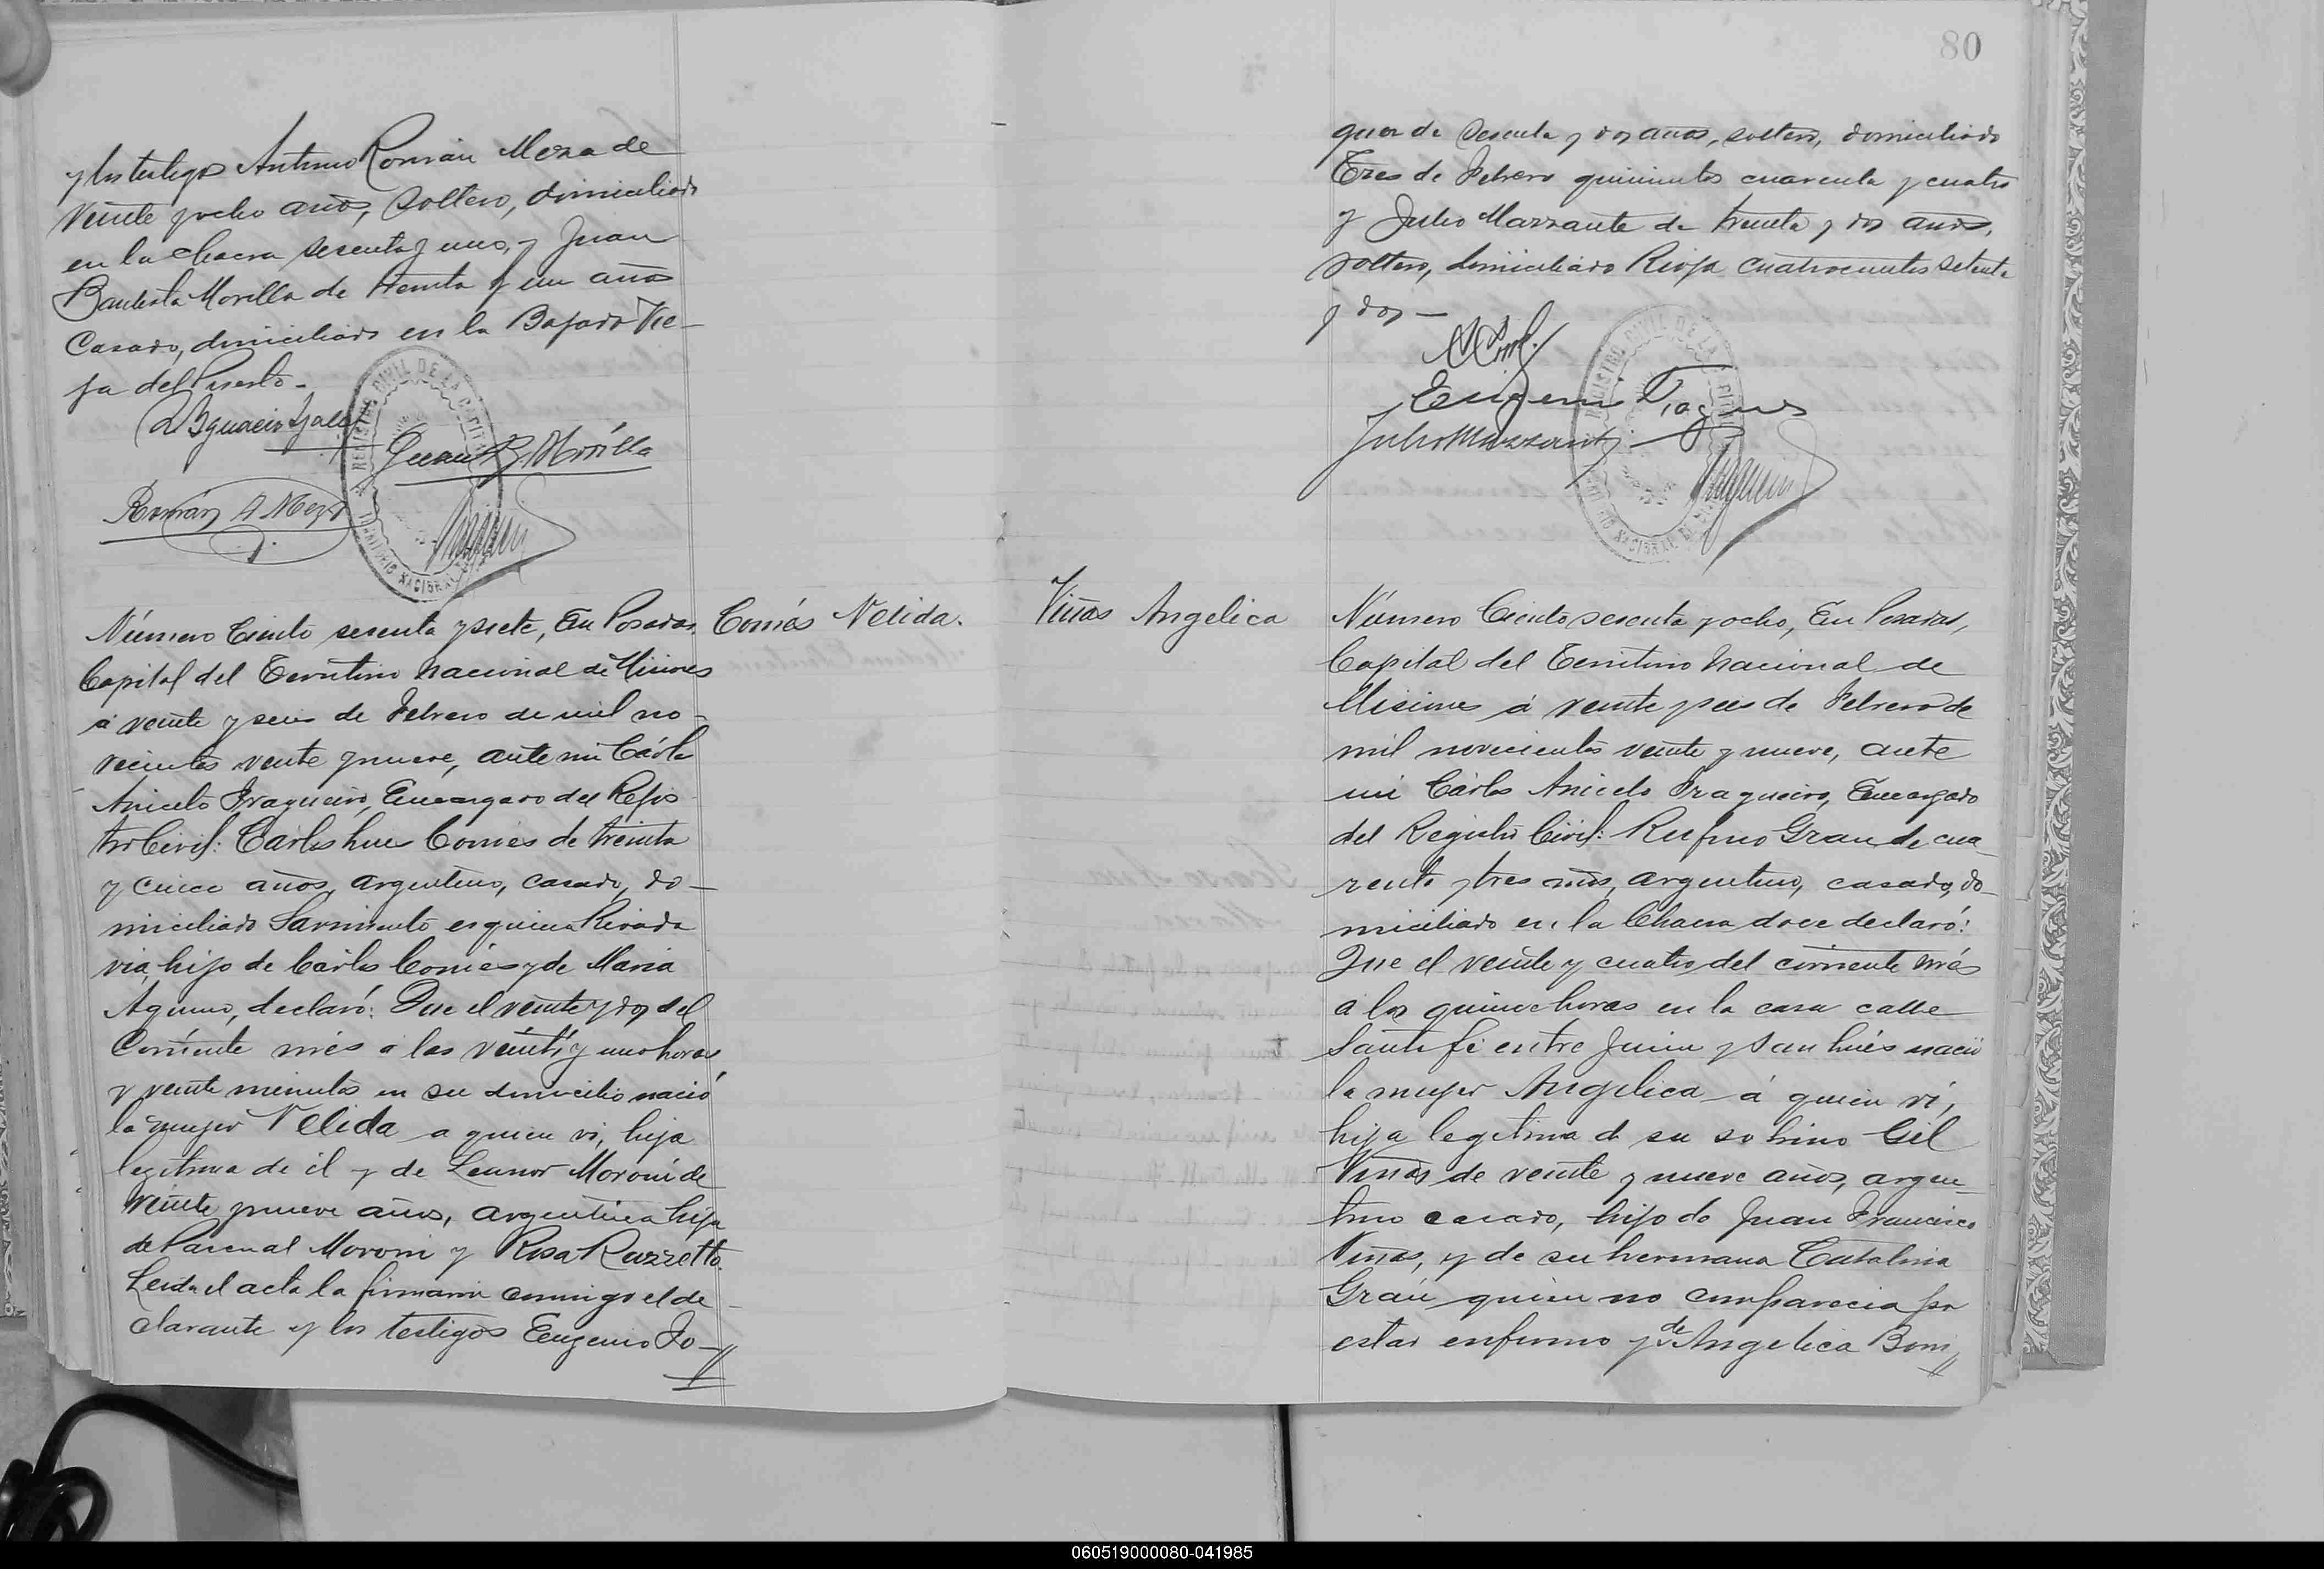 y los testigos Antimo Román Meza de
veinte y ocho años, soltero, domiciliado
en la chacra sesenta y uno, y Juan
Bautista Morilla de treinta y un años
Casado, domiciliado en la Bajada Vie-
ja del Puerto-
Juan B. Morilla
Román A Meza
REGISTRO CIVIL DE LA CAPITAL
Número Ciento sesenta y siete, En Posadas,
Capital del Territorio Nacional de Misiones
á veinte y seis de Febrero de mil no-
vecientos veinte y nueve, ante mi Cárlos
Aniceto Fragueiro, Encargado del Regis
tro Civil: Carlos Luis Comes de treinta
y cinco años, argentino, casado, do-
miciliado Sarmiento esquina Rivada
via, hijo de Carlos Comés y de Maria
Aquino, declaró: Que el veinte y dos del
Corriente més a las veinti y uno horas
y veinte minutos en su domicilio nació
la mujer Velida a quien vi, hija
legitima de él y de Leonor Moroni de
veinte y nueve años, argentina hija
de Pascual Moroni y Rosa Ruzzetto.
Leida el acta la firmaron conmigo el de-
clarante y los testigos Eugenio Do-
Comés Velida.
80
quer de sesenta y dos años, soltero, domiciliado
Tres de Febrero quinientos cuarenta y cuatro
y Julio Mazzante de treinta y dos años,
soltero, domiciliado Rioja cuatrocientos setenta
y dos-
Julio Mazzanti
REGISTRO CIVIL DE LA CAPITAL
Viñas Angelica
Número Ciento sesenta y ocho, En Posadas,
Capital del Territorio Nacional de
Misiones á veinte y seis de Febrero de
mil novecientos veinte y nueve, ante
mi Cárlos Aniceto Fragueiro, Encargado
del Registro Civil: Rufino Grau de cua-
renta y tres años, argentino, casado, do-
miciliado en la Chacra doce declaró:
Que el veinte y cuatro del corriente més
a las quince horas en la casa calle
Santa fé entre Junin y San Luis nació
la mujer Angelica á quien ví,
hija legitima de su sobrino Gil
Viñas de veinte y nueve años, argen-
tino casado, hijo de Juan Francisco
Viñas, y de su hermana Catalina
Gráu quien no comparecia por
estar enfermo y de Angelica Boni
060519000080-041985